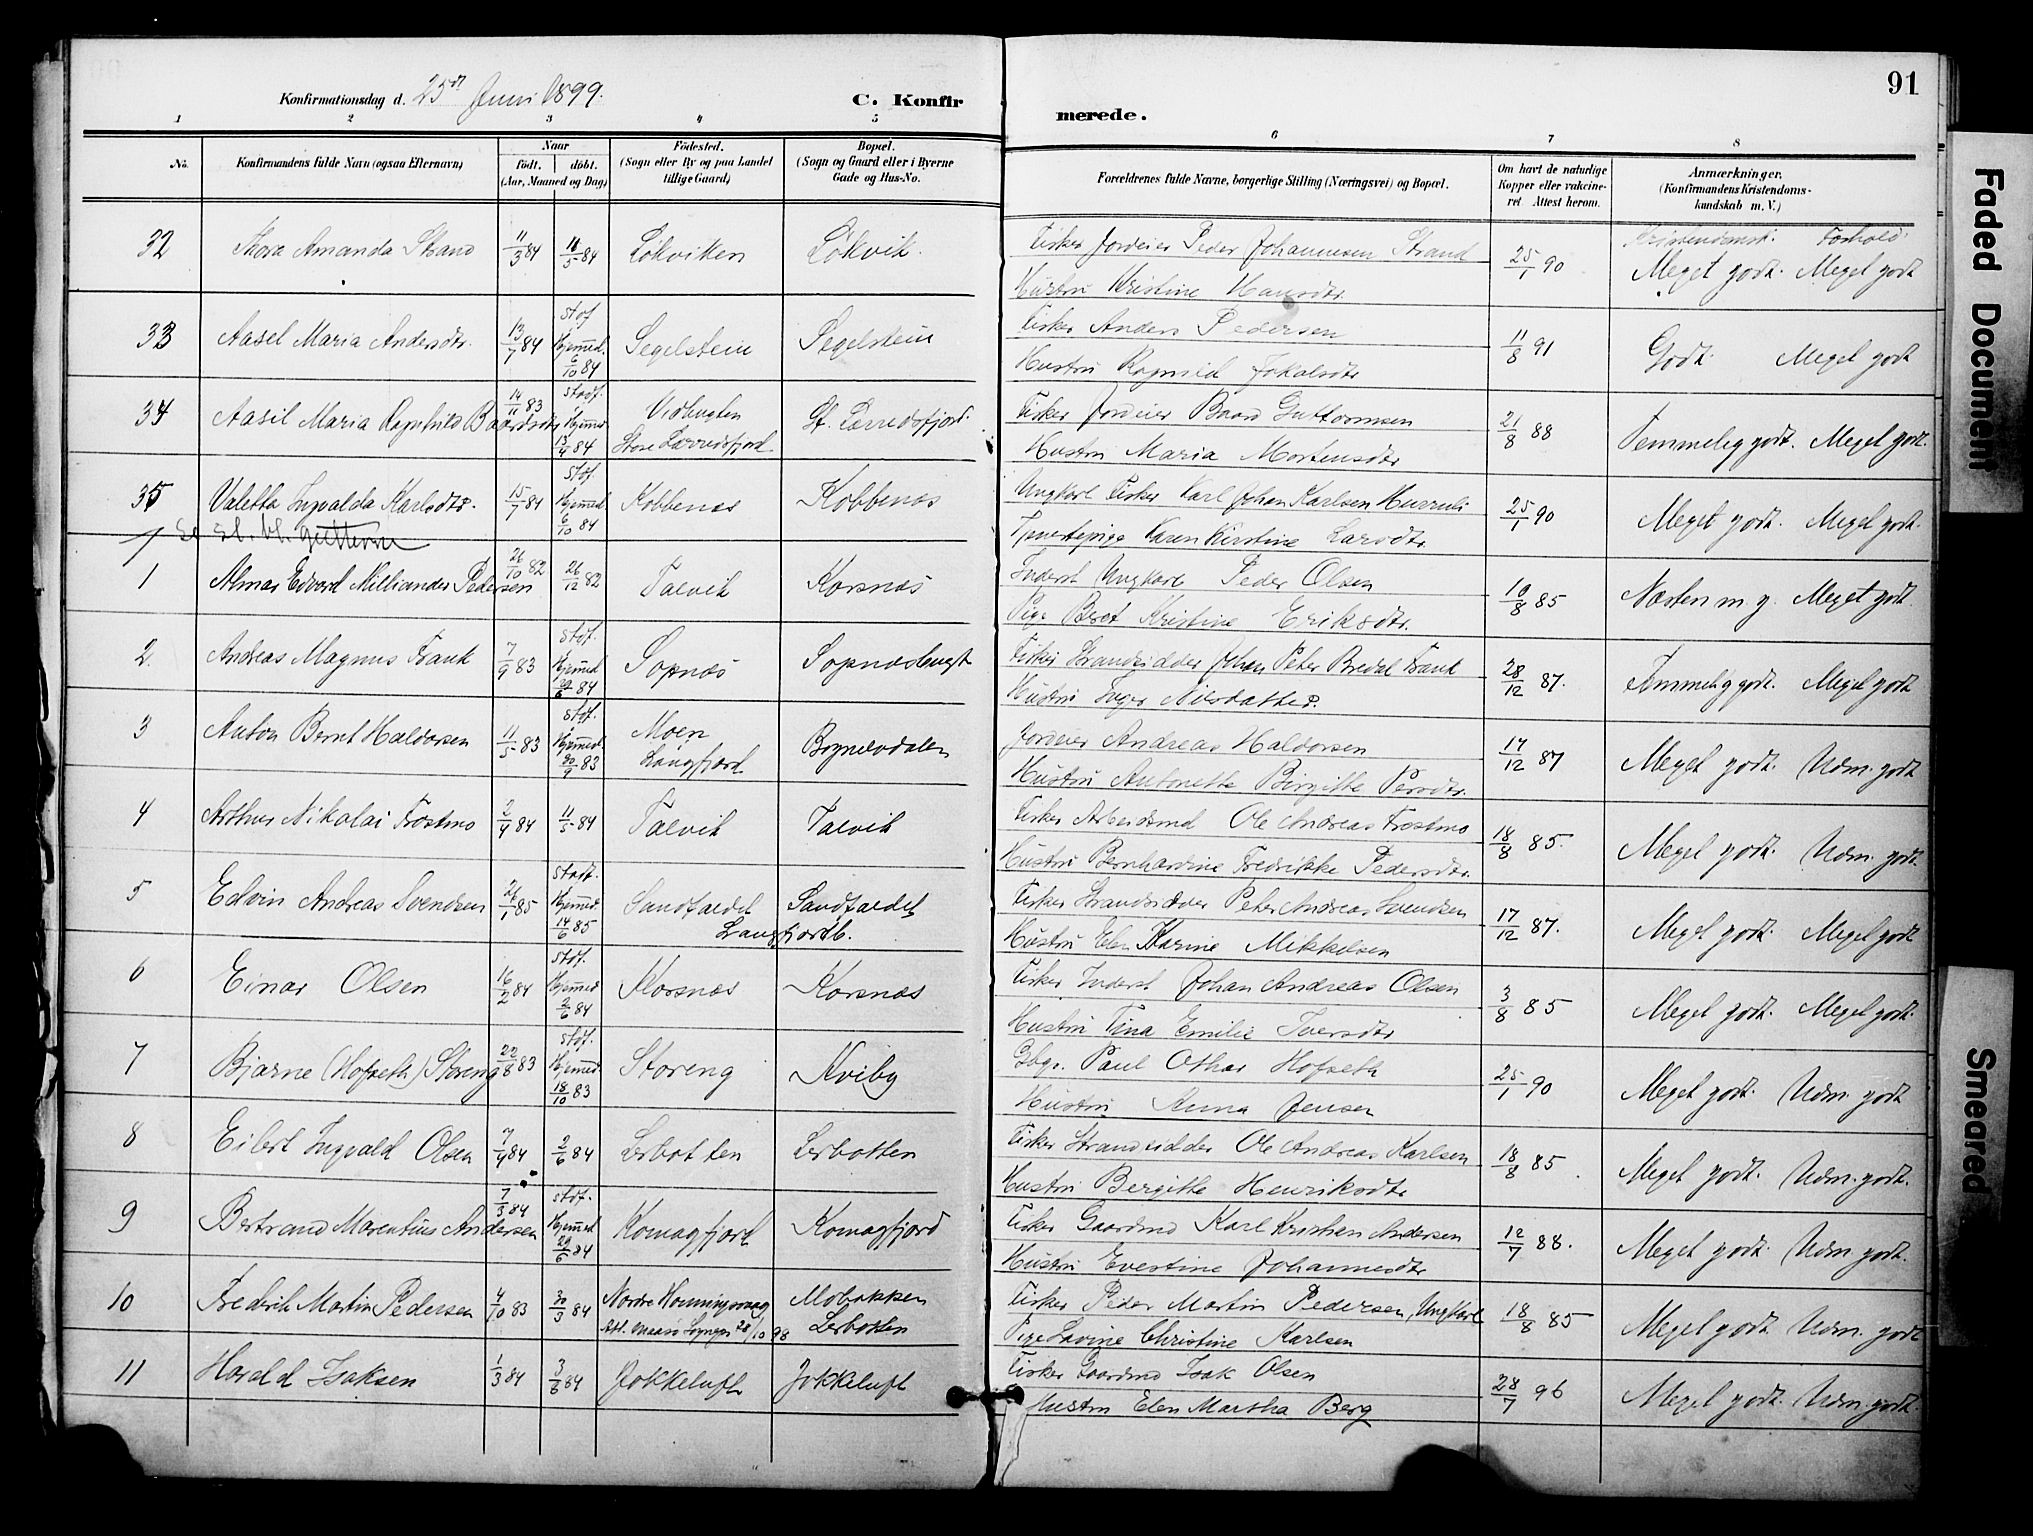 Konfirmationsdag d. 25de Juni 1899.
C. Konfirmerede.
91
1 2 3 4 5 6 7 8
No.
Konfirmandens fulde Navn (ogsaa Efternavn)
Naar født. døbt. (Aar, Maaned og Dag)
Fødested. (Sogn eller By og paa Landet tillige Gaard)
Bopæl. (Sogn og Gaard eller i Byerne Gade og Hus-No.
Forældrenes fulde Navne, borgerlige Stilling (Næringsvei) og Bopæl.
Om havt de naturlige Kopper eller vakcineret Attest herom.
Anmærkninger. (Konfirmandens Kristendomskundskab m. V.)
32 Thora Amanda Strand 11/3 84 11/5 84 Lökviken Lökvik.
Fisker Jordeier Peder Johannesen Strand
Hustru Kristine Hansdtr.
25/1 90
Kristendomsk. Forhold.
Meget godt. Meget godt
33 Aasel Maria Andersdtr. 13/7 84 stdf. Hjemmed. 6/10 84 Segelstein Segelstein
Fisker Anders Pedersen
Hustru Ragnild Jokalsdtr
11/8 91 Godt. Meget godt
34 Aasil Maria Ragnhild Baardsdtr 14/11 83 stadf. Hjemmed 13/4 84 Vidbugten Store Lerredsfjord St. Lerredsfjord.
Fisker Jordeier Baard Guttormsen
Hustru Maria Mortensdtr
21/8 88 Temmelig godt. Meget godt.
35 Valetta Ingvalda Karlsdtr. 15/7 84 stdf. Hjemmed 6/10 84 Kobbenes Kobbenes
Ungkarl Fisker Karl Johan Karlsen
Tjenestepige Karen Kirstine Larsdtr.
25/1 90 Meget godt. Meget godt.
1 Almar Edvard Milliander Pedersen 26/10 82 26/12 82 Talvik Korsnæs
Inderst Ungkarl Peder Olsen
Pige Beret Kristine Eriksdtr.
10/8 85 Næsten m. g. Meget godt.
2. Andreas Magnus Frank 7/9 83 stdf. Hjemmed 29/6 84 Sopnæs Sopnæsbugt
Fisker Strandsidder Johan Peter Bredal Frank
Hustru Inger Nilsdatter
28/12 87. Temmelig godt. Meget godt
3 Anton Bernt Haldorsen 11/5 83 stdf. Hjemmed. 30/9 83 Moen Langfjord Bognelvdalen
Jordeier Andreas Haldorsen
Hustru Antonette Birgitte Persdtr.
17/12 87 Meget godt. Udm. godt
4 Arthur Nikolai Frostmo 2/4 84 11/5 84 Talvik Talvik
Fisker Arbeidsmd Ole Andreas Frostmo
Hustru Bernhardine Fredrikke Pedersdtr.
18/8 85. Meget godt. Udm. godt.
5 Edvin Andreas Svendsen 26/1 85 stadf. Hjemmed 14/6 85 Sandfaldet Sandfaldet
Langfjordb.
Fisker Strandsidder Peter Andreas Svendsen
Hustru Elen Karine Mikkelsen
17/12 87. Meget godt. Meget godt
6 Einar Olsen 16/2 84 stdf. Hjemmed 2/6 84 Korsnæs Korsnæs
Fisker Inderst Johan Andreas Olsen
Hustru Tina Emilie Iversdtr
3/8 85 Meget godt. Meget godt.
7 Bjarne (Hofseth) Storeng 22/8 83 stdf. Hjemmed 18/10 83 Storeng Kviby
Gbgr. Paul Othar Hofseth
Hustru Anna Jensen
25/1 90 Meget godt. Udm. godt
8 Eilert Ingvald Olsen 7/4 84 2/6 84 Lerbotten Lerbotten
Fisker Strandsidder Ole Andreas Karlsen
Hustru Bergitte Henriksdtr
18/8 85 Meget godt. Udm. godt.
9 Bertrand Marentius Andersen 7/3 84 stdf. Hjemmed 29/6 84 Komagfjord Komagfjord
Fisker Gaardmd Karl Kristian Andersen
Hustru Evestine Johannesdtr
12/7 88. Meget godt. Udm. godt.
10 Frederik Martin Pedersen 4/10 83 30/3 84 Nordre Honningsvaag Mobakken
28/10 98 Lerbotten
Fisker Peder Martin Pedersen, Ungkarl
Pige Lavine Christine Karlsen
18/8 85 Meget godt. Udm. godt
11 Harald Isaksen 1/3 84 3/8 84 Jokkeluft Jokkeluft
Fisker Gaardmd Isak Olsen
Hustru Elen Martha Berg
28/7 96 Meget godt. Udm. godt.
Faded Document
Smeared